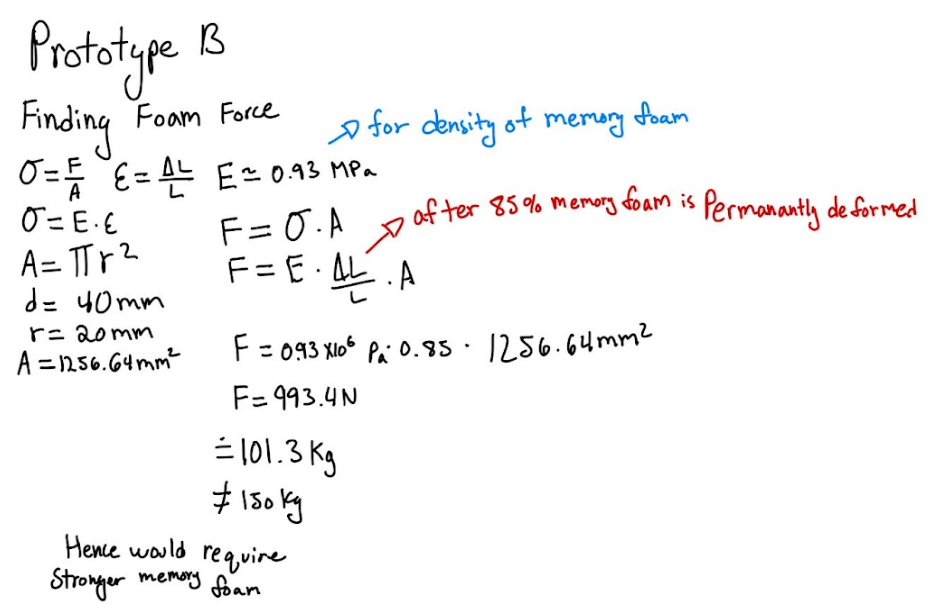 Prototype B
Finding Foam Force
for density of memory foam
σ = F/A ε = ΔL/L E ≃ 0.93 MPa
σ = E·ε
A = πr²
d = 40mm
r = 20mm
A = 1256.64mm²
F = σ·A
after 85% memory foam is Permanantly deformed
F = E · ΔL/L · A
F = 0.93 X10⁶ Pa · 0.85 · 1256.64mm²
F = 993.4N
≐ 101.3 Kg
≠ 150 Kg
Hence would require
Stronger memory foam